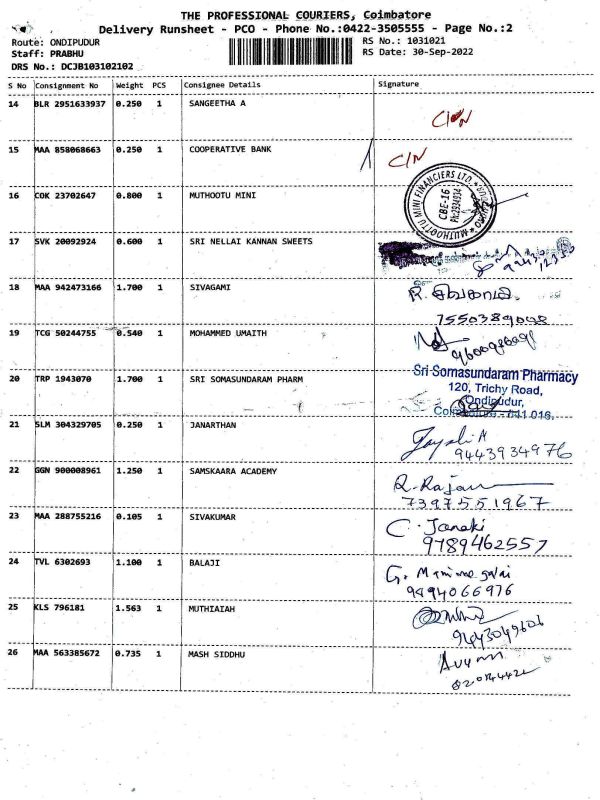 THE PROFESSIONAL COURIERS, Coimbatore
Delivery Runsheet - PCO - Phone No.:0422-3505555 - Page No.:2
Route: ONDIPUDUR RS No.: 1031021
Staff: PRABHU RS Date: 30-Sep-2022
DRS No.: DCJB103102102
S No Consignment No Weight PCS Consignee Details Signature
14 BLR 2951633937 0.250 1 SANGEETHA A
15 MAA 858068663 0.250 1 COOPERATIVE BANK C/N
16 COK 23702647 0.800 1 MUTHOOTU MINI
MUTHOOTTU MINI FINANCIERS LTD.
CBE-16
17 SVK 20092924 0.600 1 SRI NELLAI KANNAN SWEETS
18 MAA 942473166 1.700 1 SIVAGAMI R. சிவகாமி
7550389098
19 TCG 50244755 0.540 1 MOHAMMED UMAITH
20 TRP 1943070 1.700 1 SRI SOMASUNDARAM PHARM
Sri Somasundaram Pharmacy
120, Trichy Road,
Ondipudur,
Coimbatore - 641 016.
21 SLM 304329705 0.250 1 JANARTHAN
9443934976
22 GGN 900008961 1.250 1 SAMSKAARA ACADEMY R. Rajan
7397551967
23 MAA 288755216 0.105 1 SIVAKUMAR C. Janaki
9789462557
24 TVL 6302693 1.100 1 BALAJI
9894066976
25 KLS 796181 1.563 1 MUTHIAIAH
9443049606
26 MAA 563385672 0.735 1 MASH SIDDHU